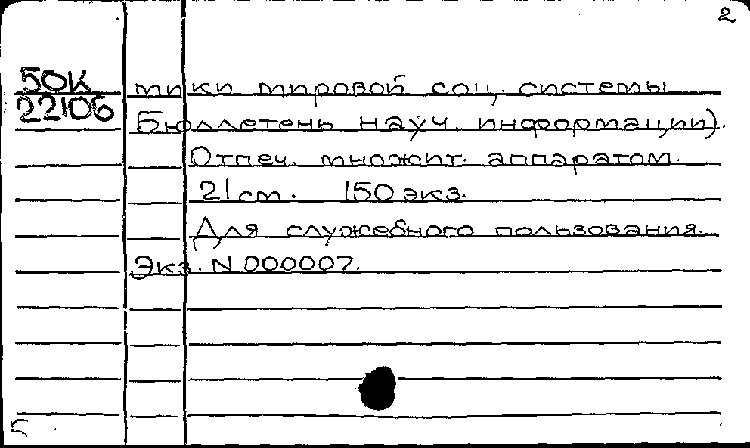 2
50К тики мировой соц. системы
22106 Бюллетень науч. информации).
Отпеч. множит. аппаратом.
21 см. 150 экз.
Для служебного пользования.
Экз. N 000007.